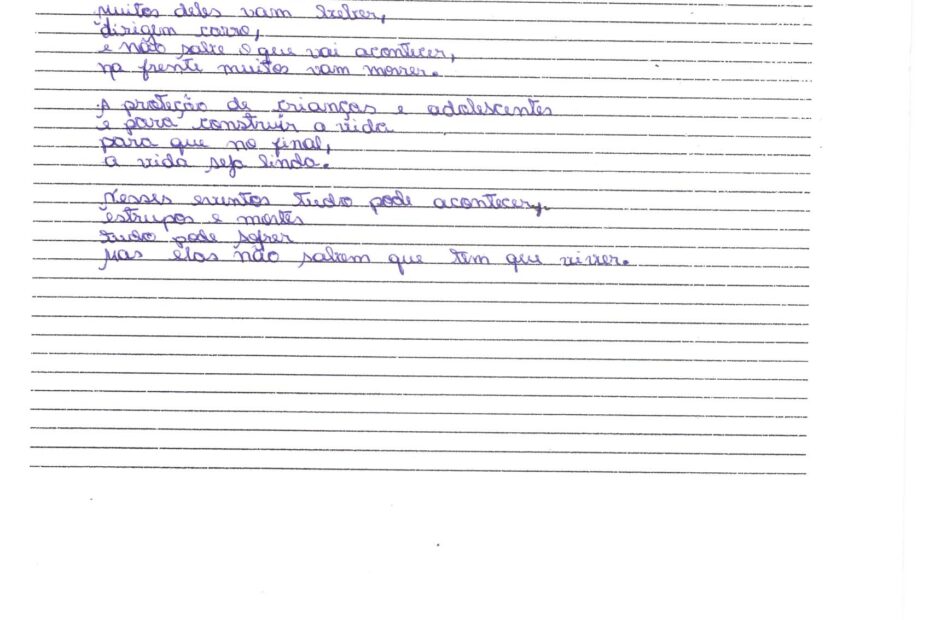 muitos deles vam beber,
dirigem carro,
e não sabe o que vai acontecer,
na frente muitos vam morrer.
A proteção de crianças e adolescentes
é para construir a vida
para que no final,
a vida seja linda.
Nesses eventos tudo pode acontecer,
estrupos e mortes
tudo pode sofrer
mas elas não sabem que tem que viver.